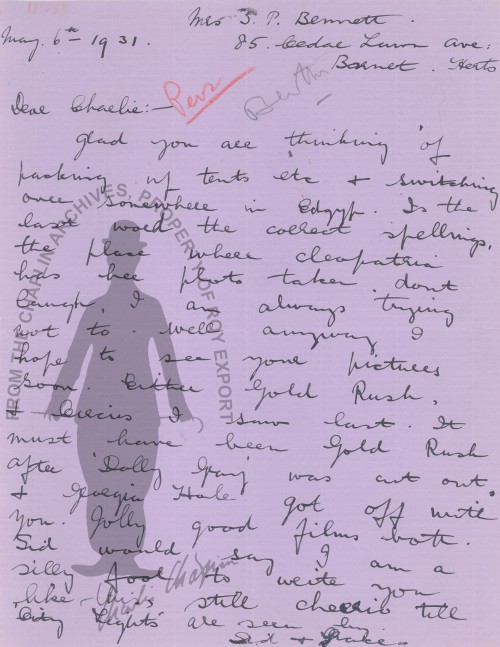 Mrs S. P. Bennett.
May. 6th - 1931.
85. Cedar Lawn Ave:
Barnet. Herts
Dear Charlie:-
Pers
glad you are thinking of
packing up tents etc & switching
over somewhere in Edgyp. Is the
last word the correct spellings,
the place where cleopatria
has her photo taken. dont
laugh, I am always trying
not to. Well anyway I
hope to see your pictures
soon. Either Gold Rush,
& Circus I saw last. It
must have been Gold Rush
after 'Dolly Gray' was cut out
& Georgia Hale got off with
you. Jolly good films both.
Sid would say I am a
silly fool to write you
like this still cheerio till
City Lights are seen by
Sid &
FROM THE CHAPLIN ARCHIVES, PROPERTY OF ROY EXPORT
Charlie Chaplin